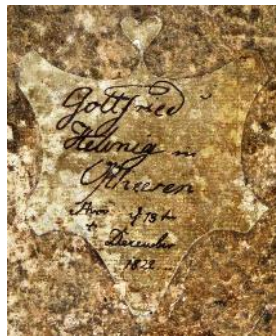 Gottfried
Helwig in
Ostheeren
d 13t
December
1822